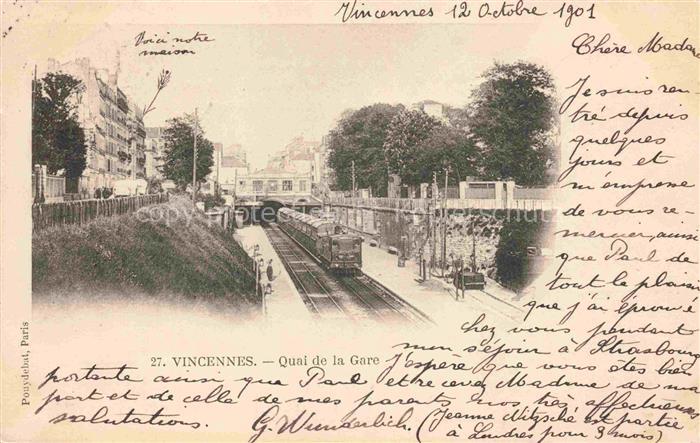 Vincennes 12 Octobre 1901
Voici notre
maison
Chère Madame
Je suis ren-
tré depuis
quelques
jours et
m'empresse
de vous re-
mercier, ainsi
que Paul de
tout le plaisir
que j'ai éprouvé
chez vous pendant
mon séjour à Strasbourg
J'espère que vous êtes bien
portante ainsi que Paul et recevez Madame de ma
part et de celle de mes parents nos très affectueuses
salutations. G. Wunderlich. (Jeanne Nitzsché est partie
à Londres pour 3 mois)
27. VINCENNES. — Quai de la Gare
Pouydebat, Paris
depositphotos
depositphotos
depositphotos